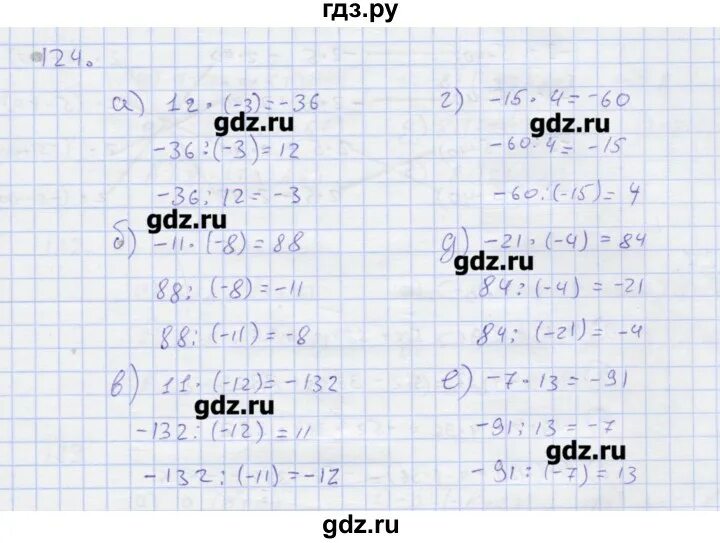 гдз.ру
124.
а) 12 · (-3) = -36
-36 : (-3) = 12
-36 : 12 = -3
б) -11 · (-8) = 88
88 : (-8) = -11
88 : (-11) = -8
в) 11 · (-12) = -132
-132 : (-12) = 11
-132 : (-11) = -12
г) -15 · 4 = -60
-60 : 4 = -15
-60 : (-15) = 4
д) -21 · (-4) = 84
84 : (-4) = -21
84 : (-21) = -4
е) -7 · 13 = -91
-91 : 13 = -7
-91 : (-7) = 13
gdz.ru
gdz.ru
gdz.ru
gdz.ru
gdz.ru
gdz.ru
gdz.ru